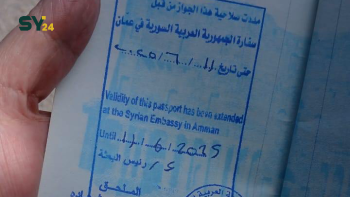 SY24
مددت صلاحية هذا الجواز من قبل
سفارة الجمهورية العربية السورية في عمان
حتى تاريخ ١١/٦/٢٠٢٥
Validity of this passport has beve extended
at the Syrian Embassy in Amman
Until 11/6/2025
ع/ رئيس البعثة
الملحق